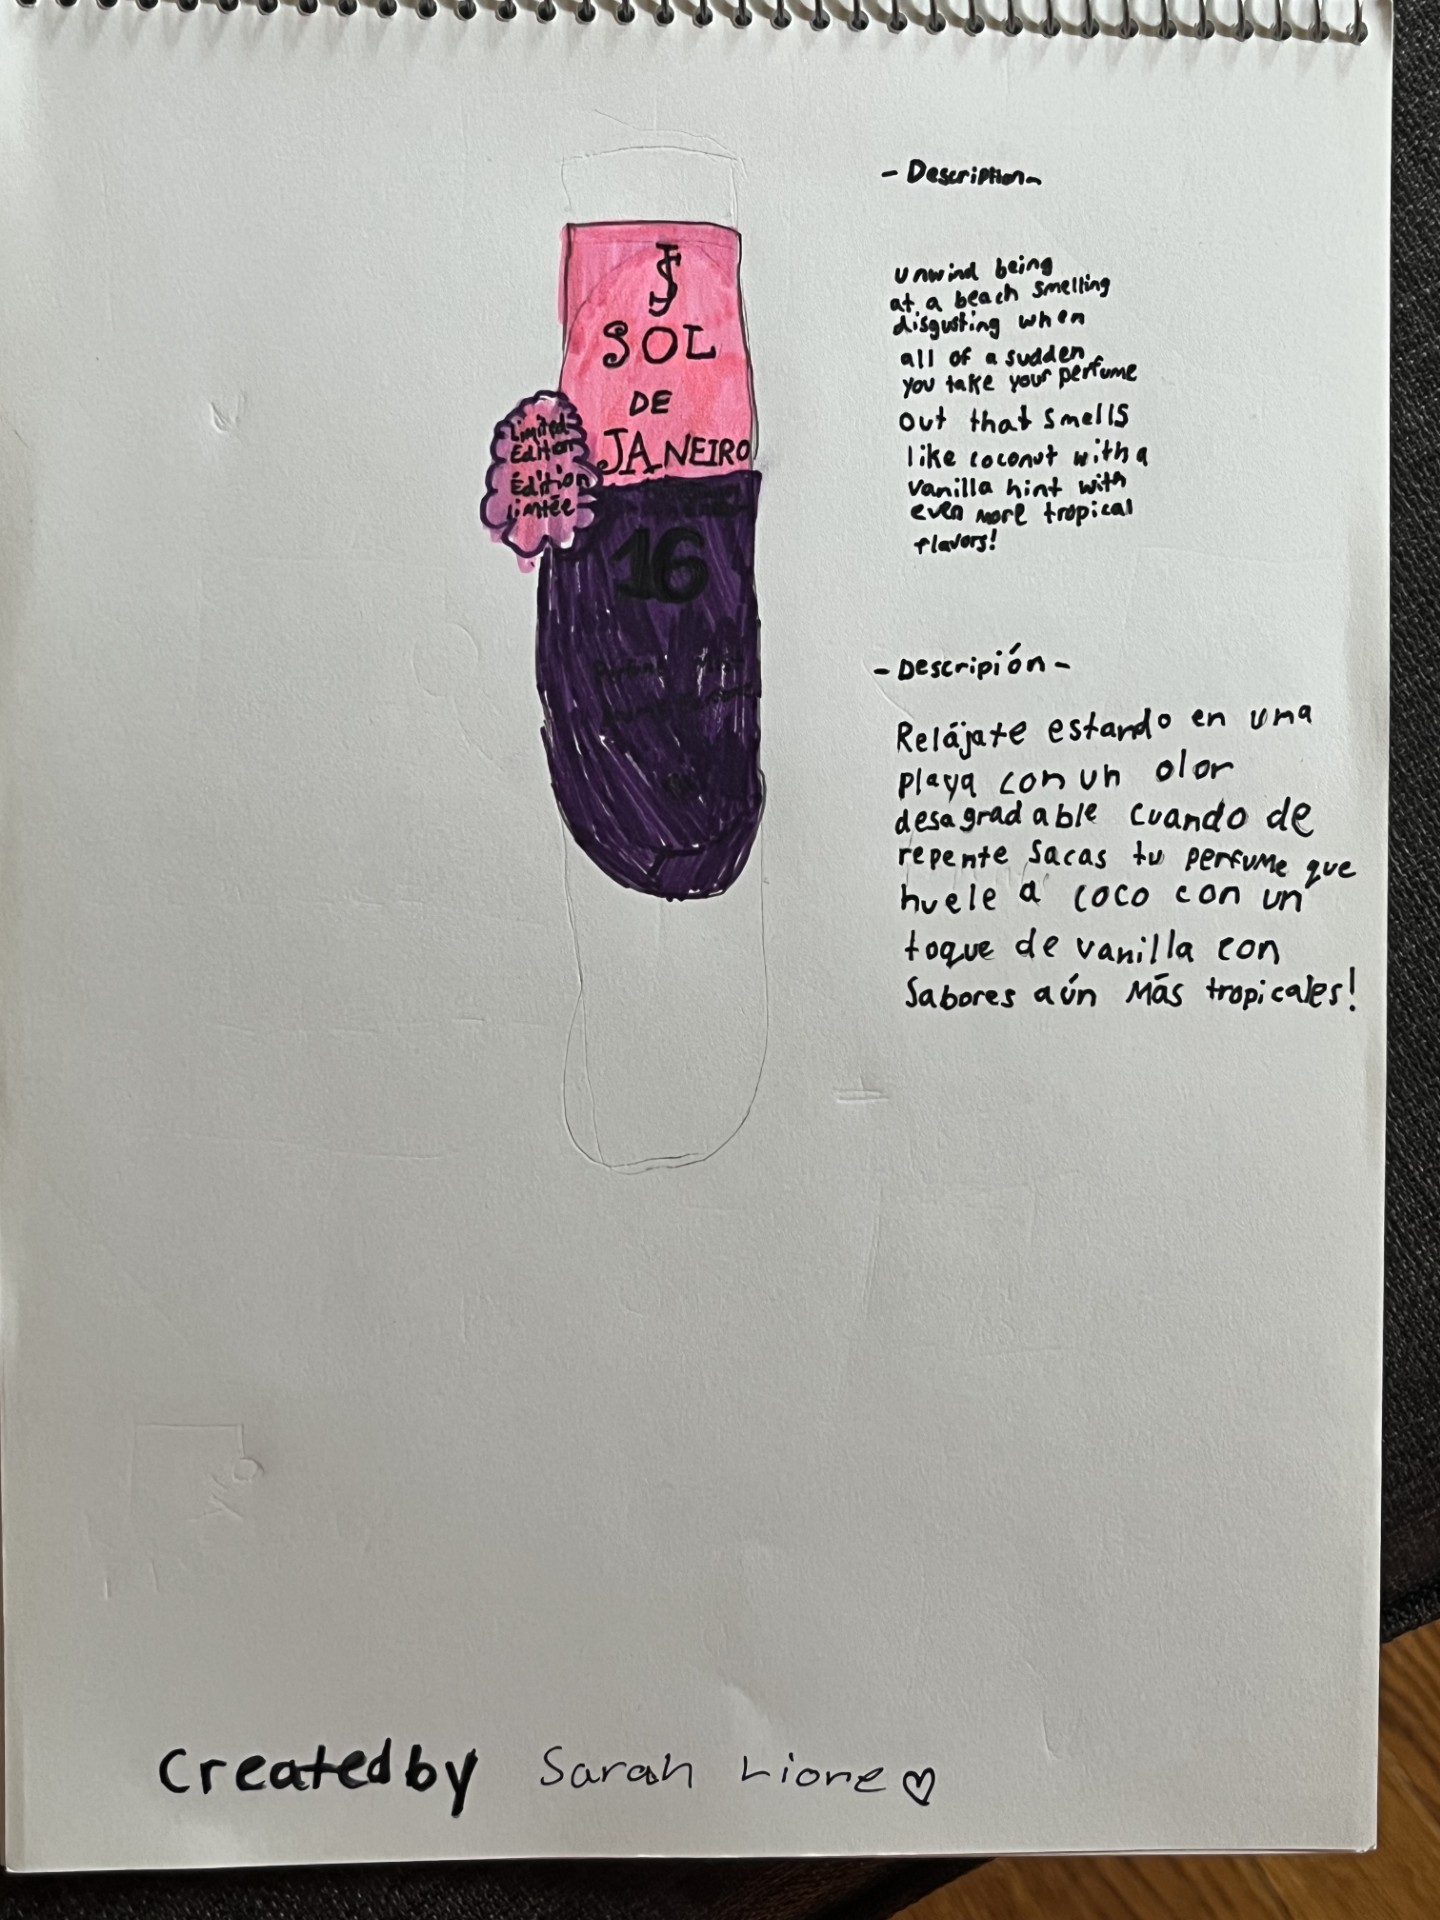 SJ
SOL
DE
JANEIRO
Limited
Edition
Édition
Limitée
16
Perfume Mist
- Description-
Unwind being
at a beach smelling
disgusting when
all of a sudden
you take your perfume
Out that smells
like coconut with a
vanilla hint with
even more tropical
flavors!
- Descripión -
Relájate estando en una
playa con un olor
desagradable cuando de
repente sacas tu perfume que
huele a coco con un
toque de vanilla con
Sabores aún Más tropicales!
Created by Sarah Lione